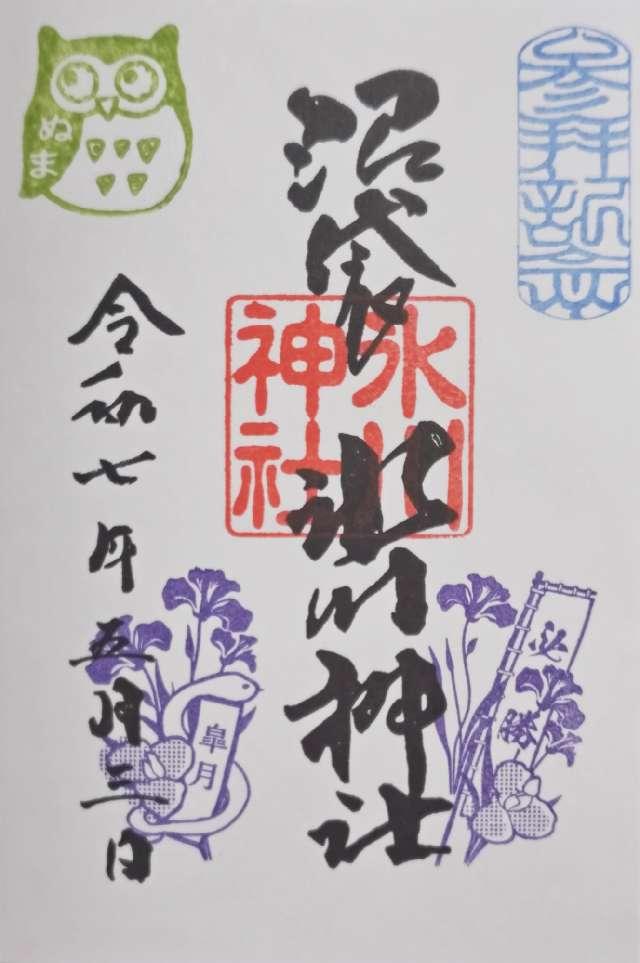 参拝記念
沼袋
氷川神社
氷川
神社
ぬま
令和七年五月三日
必勝
皐月